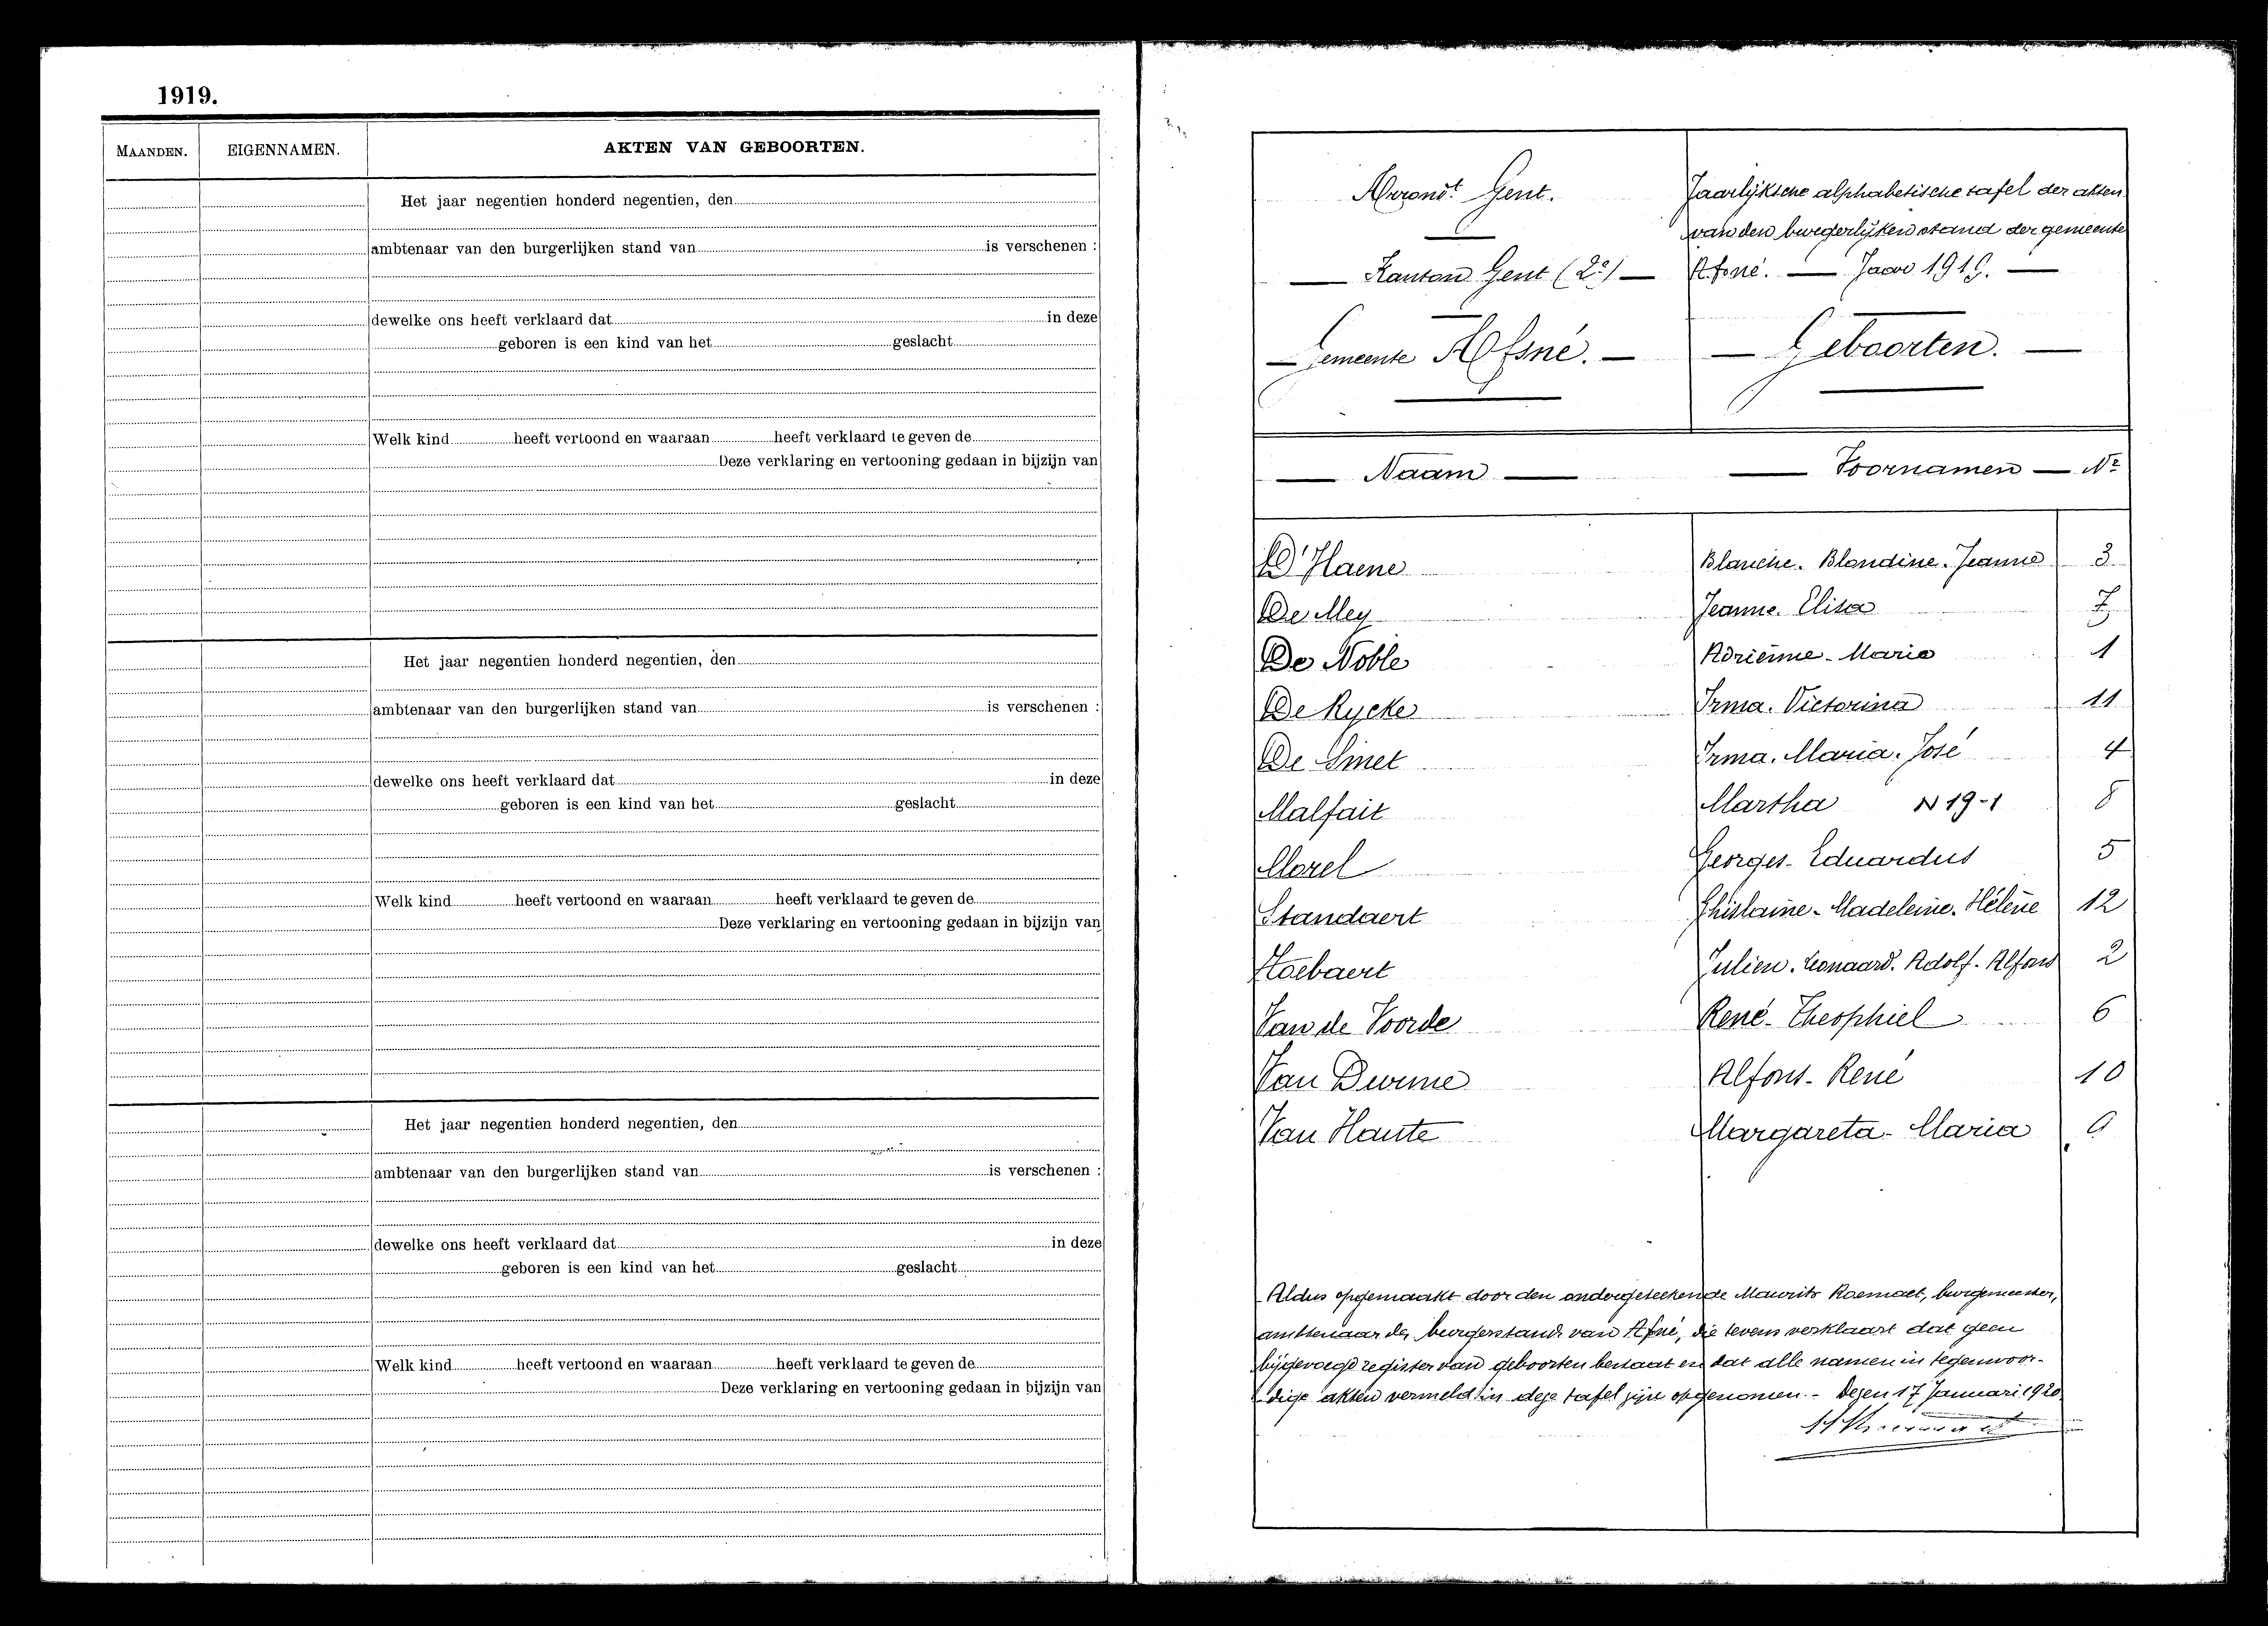 1919.
MAANDEN. EIGENNAMEN. AKTEN VAN GEBOORTEN.
Het jaar negentien honderd negentien, den
ambtenaar van den burgerlijken stand van is verschenen :
dewelke ons heeft verklaard dat in deze
geboren is een kind van het geslacht
Welk kind heeft vertoond en waaraan heeft verklaard te geven de
Deze verklaring en vertooning gedaan in bijzijn van
Het jaar negentien honderd negentien, den
ambtenaar van den burgerlijken stand van is verschenen :
dewelke ons heeft verklaard dat in deze
geboren is een kind van het geslacht
Welk kind heeft vertoond en waaraan heeft verklaard te geven de
Deze verklaring en vertooning gedaan in bijzijn van
Het jaar negentien honderd negentien, den
ambtenaar van den burgerlijken stand van is verschenen :
dewelke ons heeft verklaard dat in deze
geboren is een kind van het geslacht
Welk kind heeft vertoond en waaraan heeft verklaard te geven de
Deze verklaring en vertooning gedaan in bijzijn van
Arrondt Gent.
Kanton Gent (2e)
Gemeente Afsné.
Jaarlijksche alphabetische tafel der akten
van den burgerlijken stand der gemeente
Afsné. — Jaar 1919. —
— Geboorten. —
— Naam — — Voornamen — No
D'Haene Blanche. Blandine. Jeanne 3
De Mey Jeanne. Elisa 7
De Noble Adrienne - Maria 1
De Rycke Irma. Victorina 11
De Smet Irma. Maria. José 4
Malfait Martha N 19-1 8
Morel Georges - Eduardus 5
Standaert Ghislaine - Madeleine. Hélène 12
Hoebaert Julien. Leonaard. Adolf - Alfons 2
Van de Voorde René - Theophiel 6
Van Durme Alfons - René 10
Van Haute Margareta - Maria 9
Aldus opgemaakt door den ondergeteekende Maurits burgemeester,
ambtenaar des burgerstands van Afsné, die tevens verklaart dat geen
bijgevoegd register van geboorten bestaat en dat alle namen in tegenwoor-
dige akten vermeld in deze tafel zijn opgenomen. - Dezen 17 Januari 1920